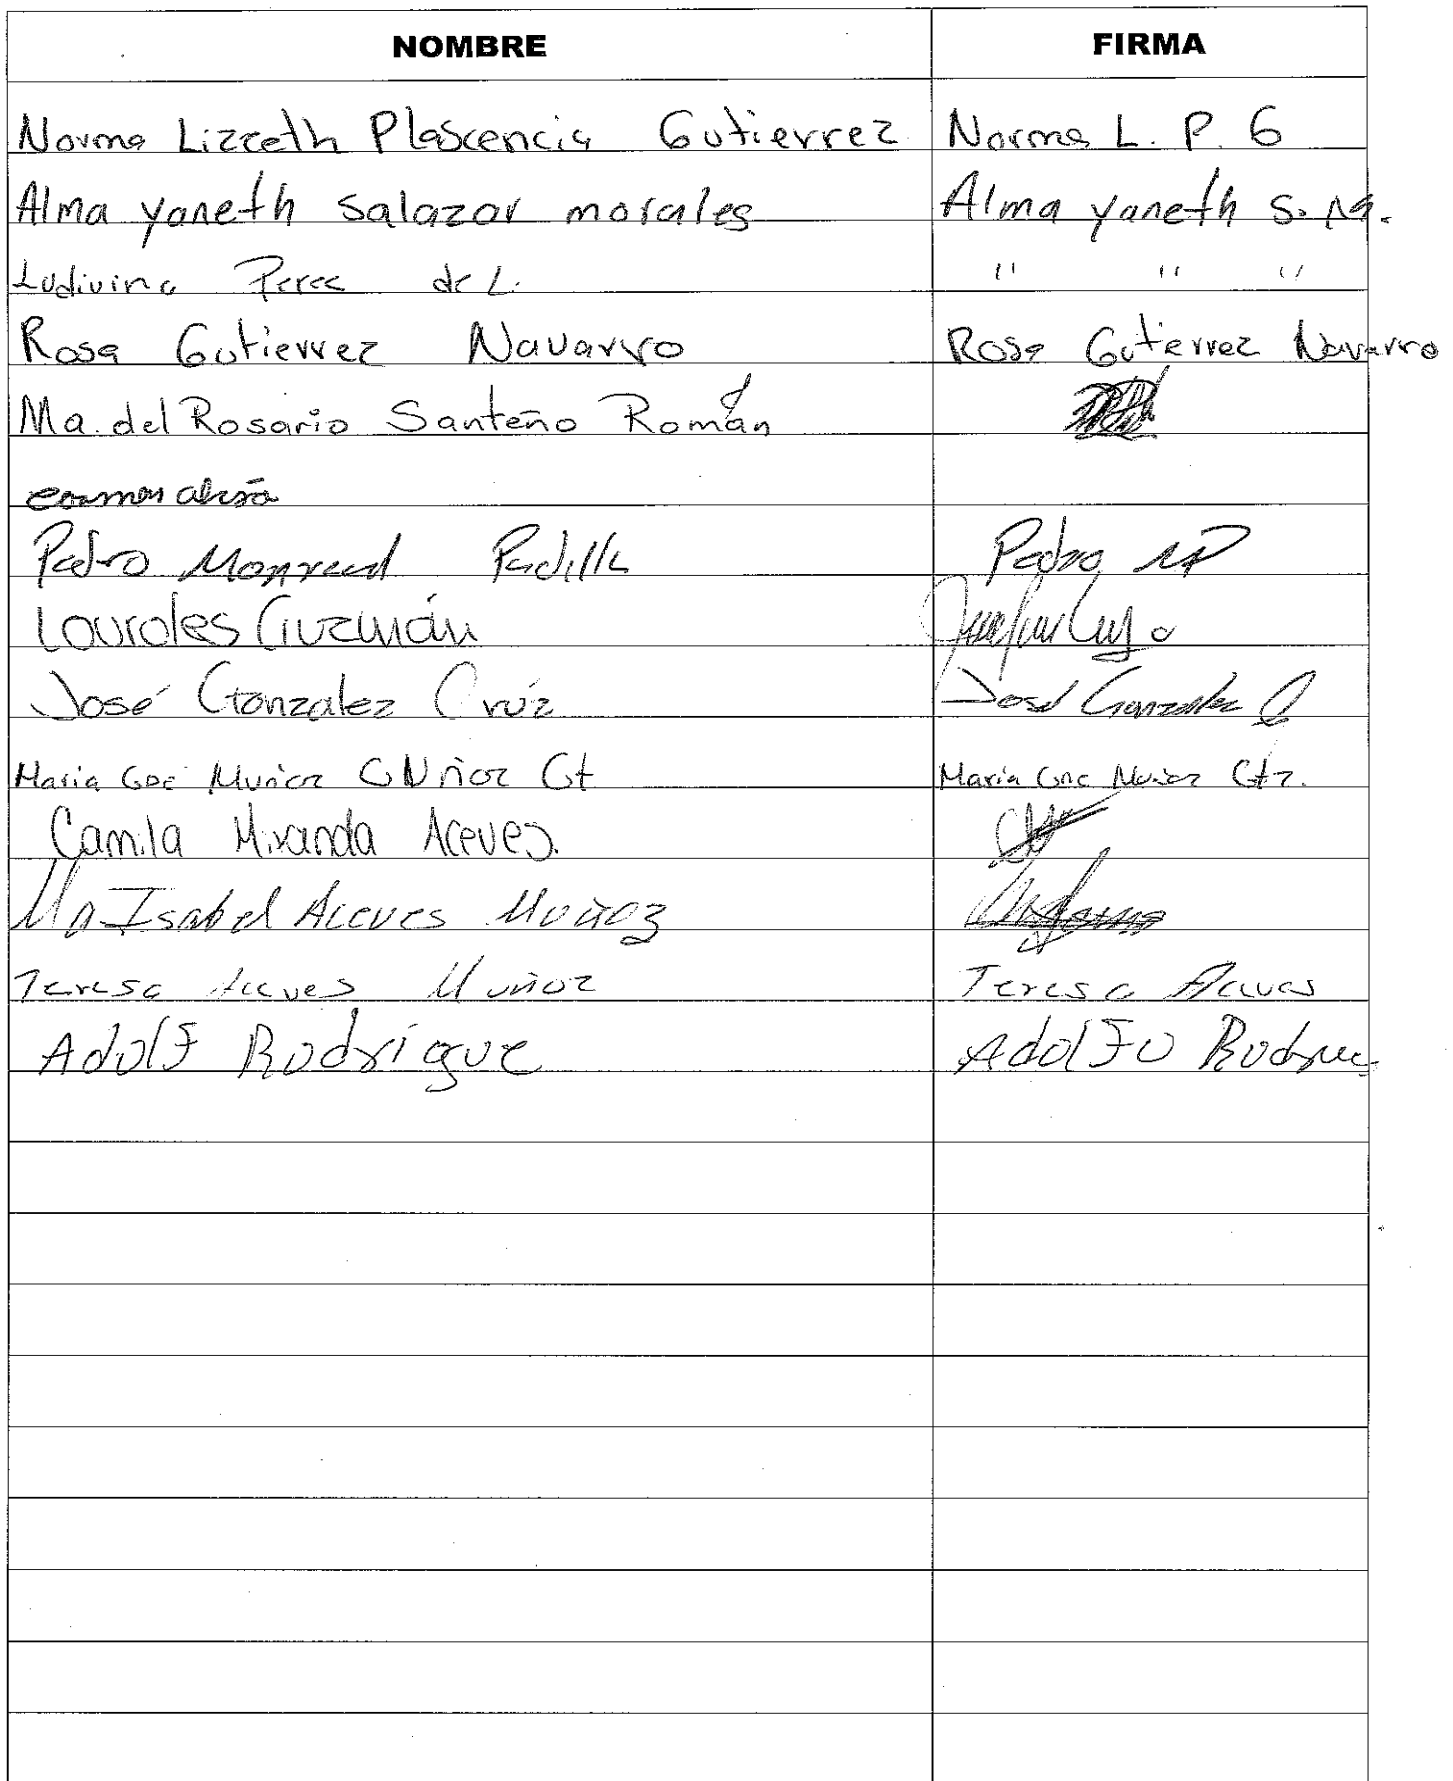 NOMBRE FIRMA
Norma Lizzeth Plascencia Gutierrez Norma L. P. G
Alma yaneth salazar morales Alma yaneth S. M.
Ludivina Perez de L. " " "
Rosa Gutierrez Navarro Rosa Gutierrez Navarro
Ma. del Rosario Santeño Román
Pedro Monreal Padilla Pedro MP
Lourdes Guzmán
José Gonzalez Crúz José Gonzalez C
Maria Muñoz Gt Maria Muñoz Gtz.
Camila Miranda Aceves.
Ma Isabel Aceves Muñoz
Teresa Aceves Muñoz Teresa Aceves
Adolf Rodrigue Adolfo